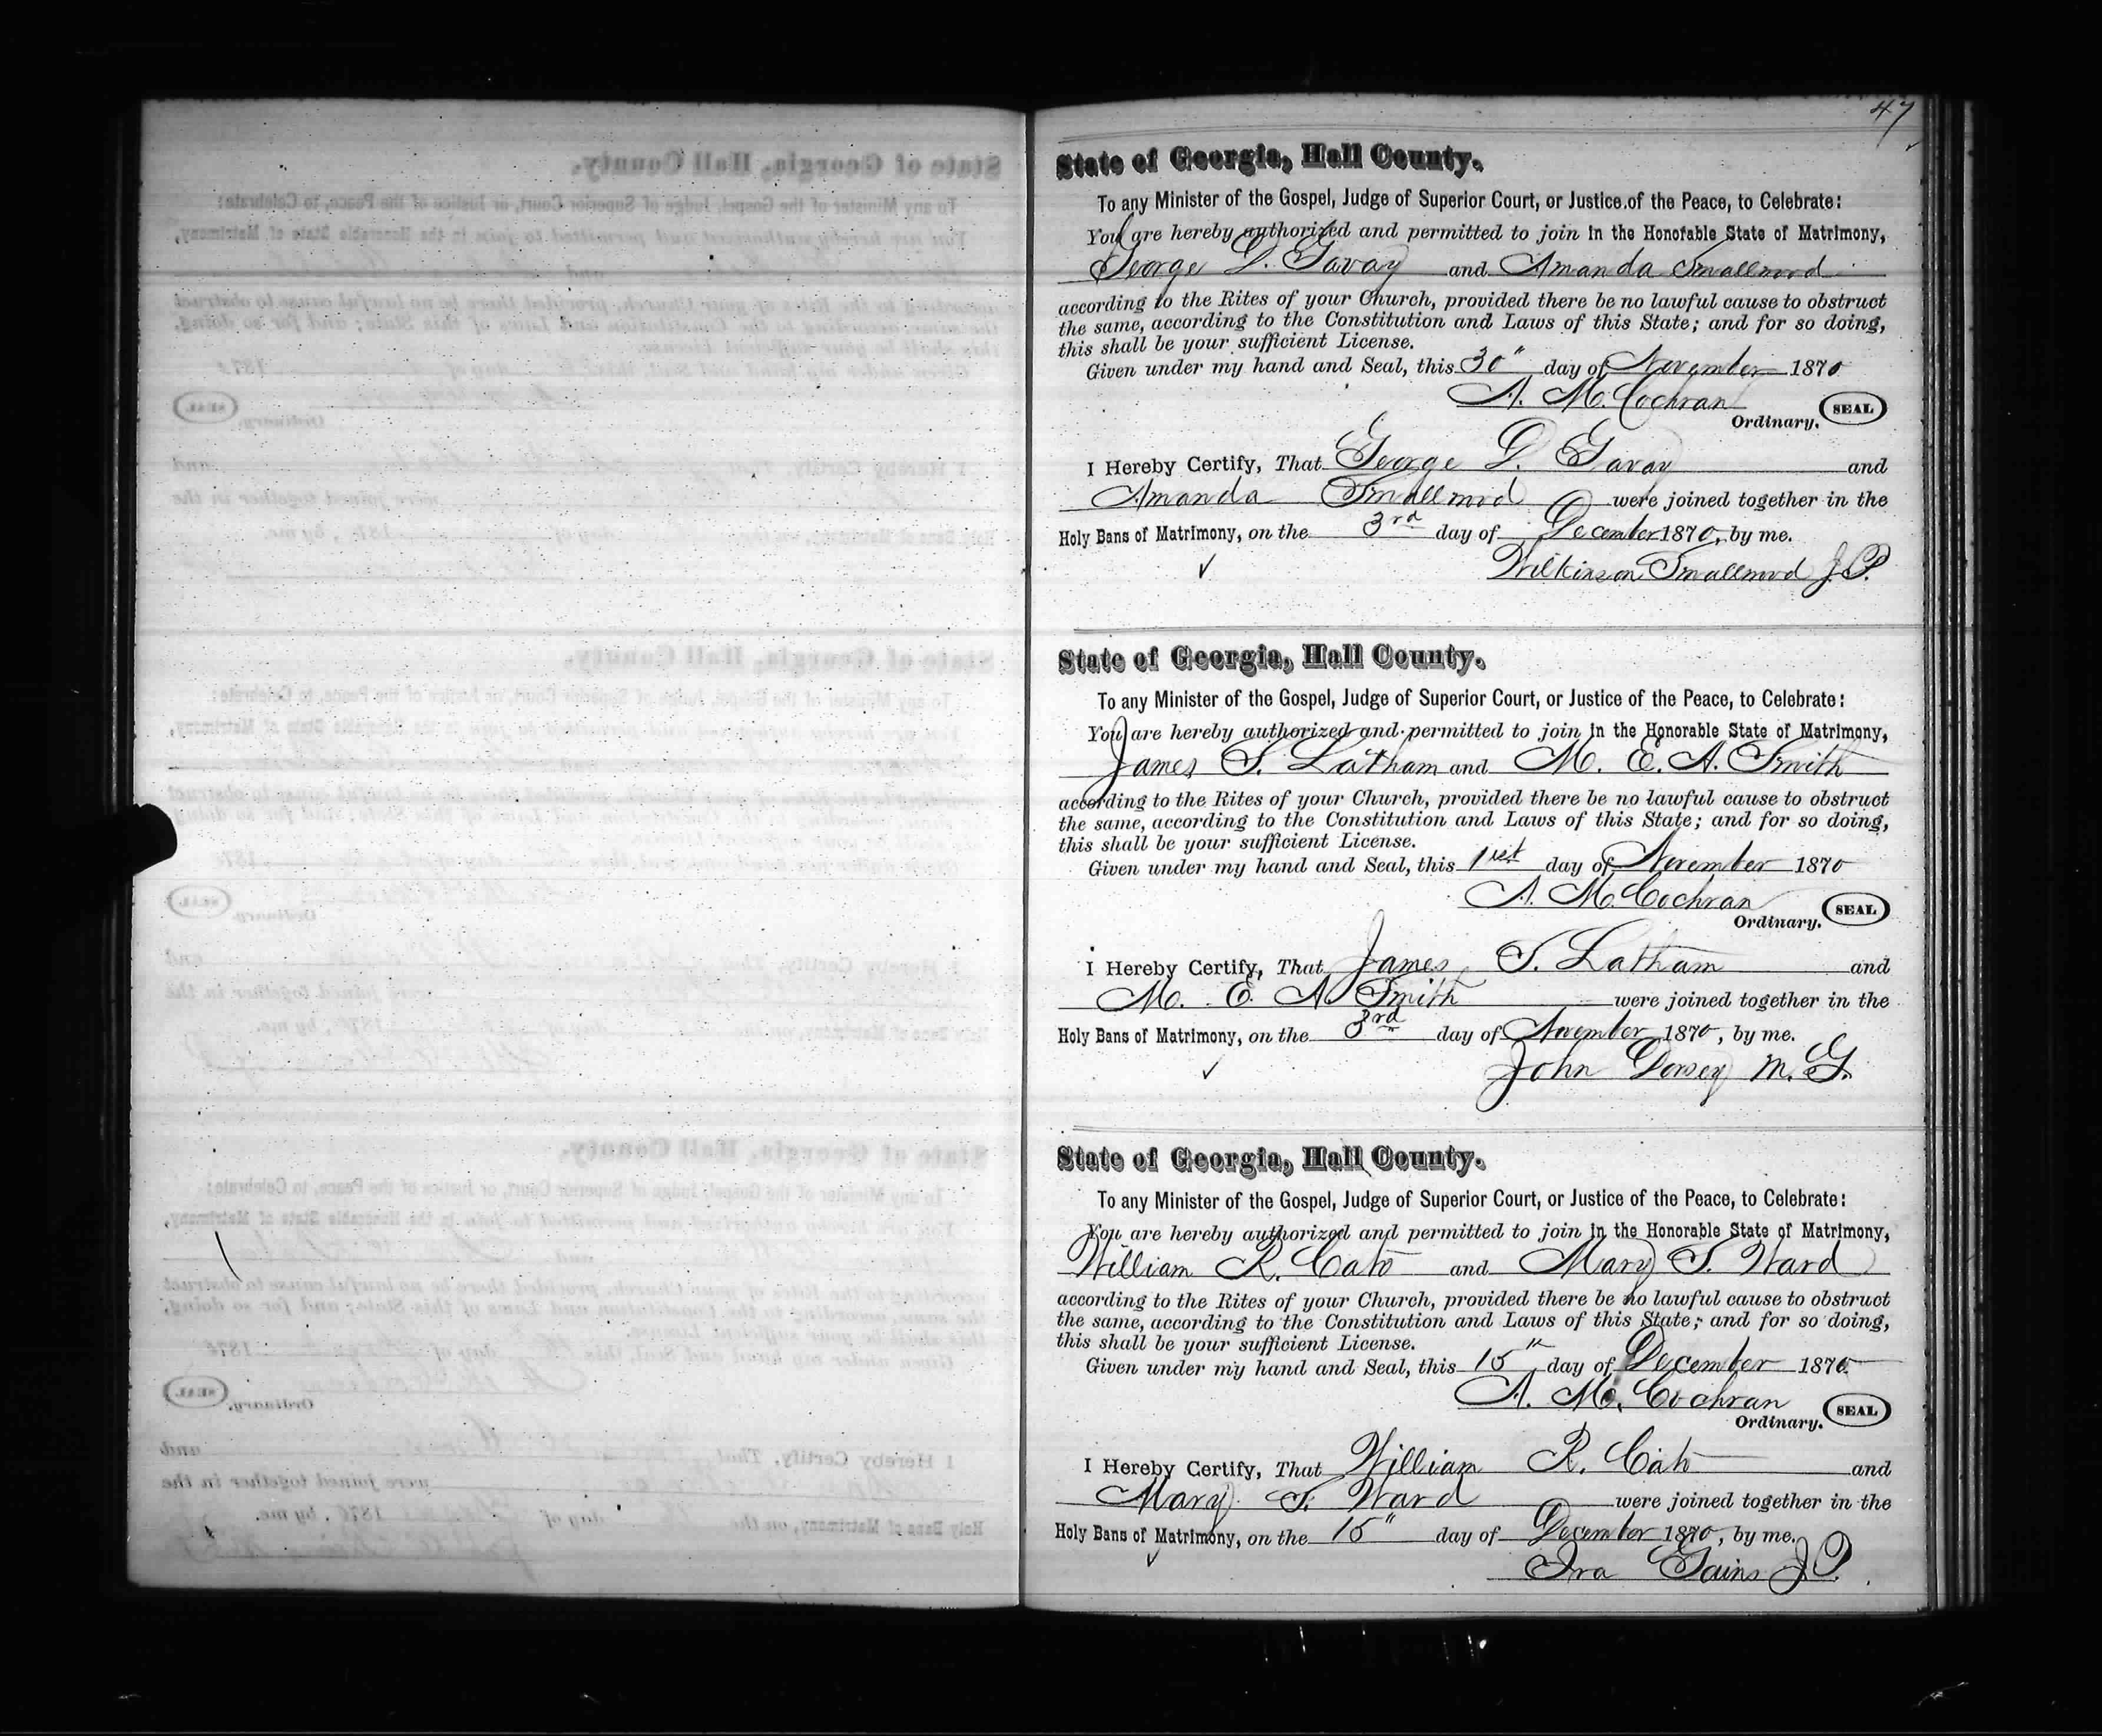 47
State of Georgia, Hall County.
To any Minister of the Gospel, Judge of Superior Court, or Justice of the Peace, to Celebrate:
You are hereby authorized and permitted to join in the Honorable State of Matrimony,
George D. Gavay and Amanda Smallwood
according to the Rites of your Church, provided there be no lawful cause to obstruct
the same, according to the Constitution and Laws of this State; and for so doing,
this shall be your sufficient License.
Given under my hand and Seal, this 30" day of November 1870
A. M. Cochran
Ordinary. SEAL
I Hereby Certify, That George D. Gavay and
Amanda Smallwood were joined together in the
Holy Bans of Matrimony, on the 3rd day of December 1870, by me.
Wilkinson Smallwood J.P.
State of Georgia, Hall County.
To any Minister of the Gospel, Judge of Superior Court, or Justice of the Peace, to Celebrate:
You are hereby authorized and permitted to join in the Honorable State of Matrimony,
James T. Latham and M. E. A. Smith
according to the Rites of your Church, provided there be no lawful cause to obstruct
the same, according to the Constitution and Laws of this State; and for so doing,
this shall be your sufficient License.
Given under my hand and Seal, this 1st day of November 1870
A. M. Cochran
Ordinary. SEAL
I Hereby Certify, That James T. Latham and
M. E. A. Smith were joined together in the
Holy Bans of Matrimony, on the 3rd day of November 1870, by me.
John Dorsey M. G.
State of Georgia, Hall County.
To any Minister of the Gospel, Judge of Superior Court, or Justice of the Peace, to Celebrate:
You are hereby authorized and permitted to join in the Honorable State of Matrimony,
William R. Cato and Mary T. Ward
according to the Rites of your Church, provided there be no lawful cause to obstruct
the same, according to the Constitution and Laws of this State; and for so doing,
this shall be your sufficient License.
Given under my hand and Seal, this 15th day of December 1870
A. M. Cochran
Ordinary. SEAL
I Hereby Certify, That William R. Cato and
Mary T. Ward were joined together in the
Holy Bans of Matrimony, on the 15" day of December 1870, by me.
Ira Gains J.P.